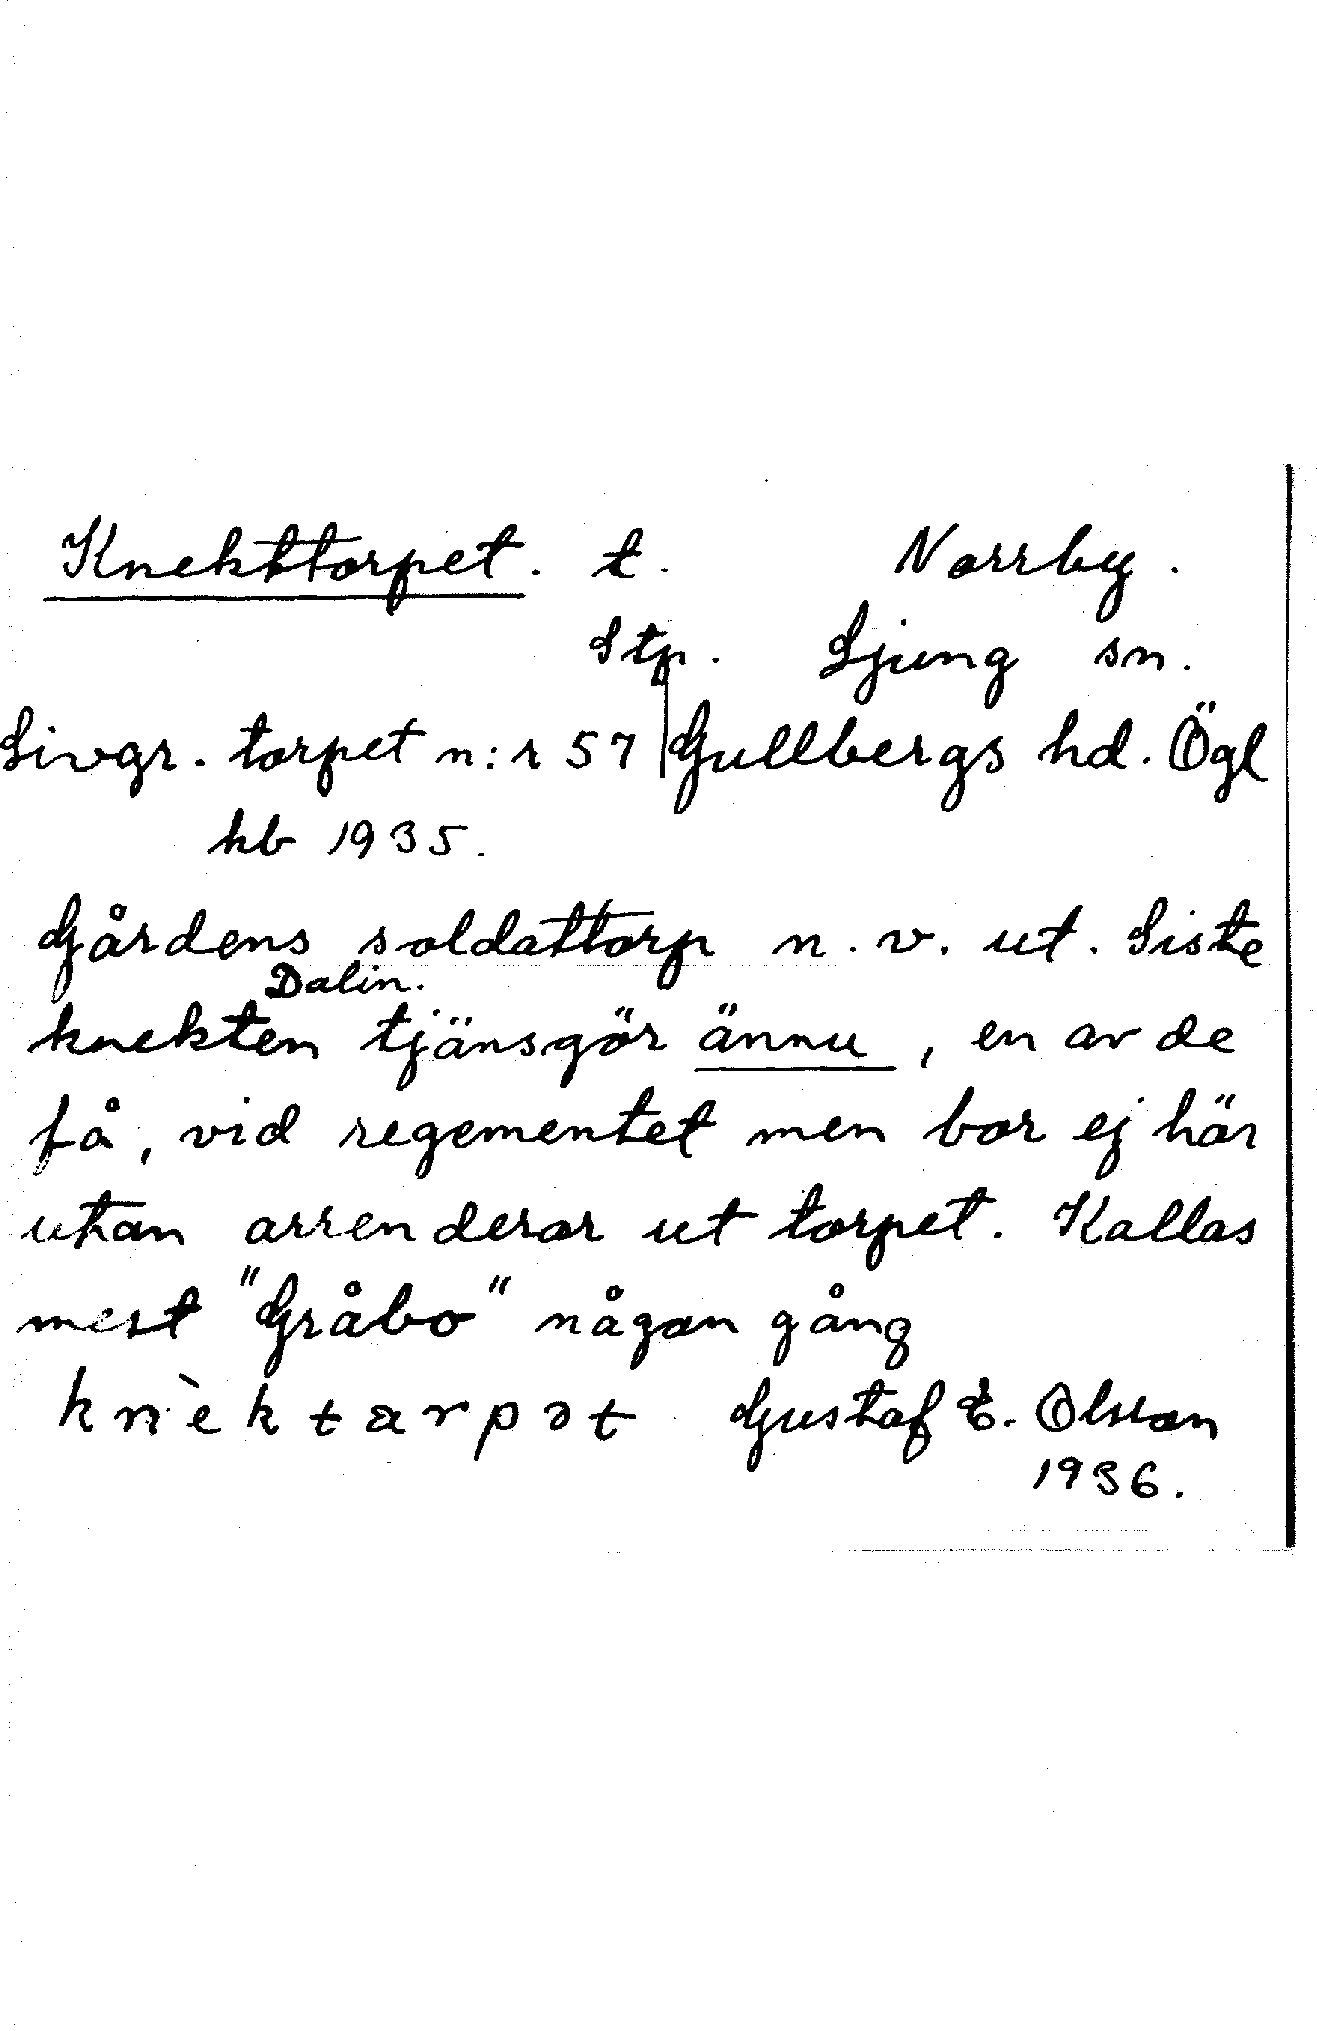 Knekttorpet. t. Norrby.
Stp. Ljung sn.
Livgr. torpet n:r 57 Gullbergs hd. Ögl
kb 1935.
Gårdens soldattorp n.v. ut. Siste
Dalin.
knekten tjänsgör ännu, en av de
få, vid regementet men bor ej här
utan arrenderar ut torpet. Kallas
mest "Gråbo" någon gång
knὲktarpət Gustaf E. Olsson
1936.